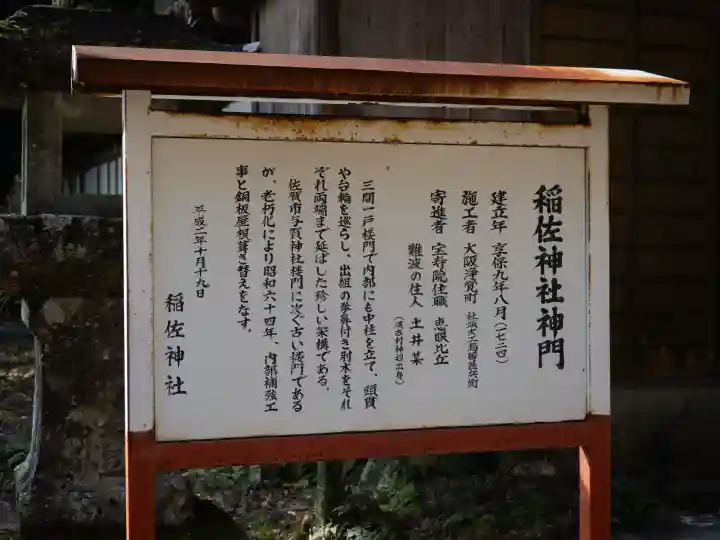 稲佐神社神門
建立年 享保九年八月(一七二四)
施工者 大阪浄覚町
寄進者 宝寿院住職 恵眼比丘
難波の住人 土井某
三間一戸楼門で内部にも中柱を立て、頭貫
や台輪を巡らし、出組の拳鼻付き肘木をそれ
ぞれ両端まで延ばした珍しい架構である。
佐賀市与賀神社楼門に次ぐ古い楼門である
が、老朽化により昭和六十四年、内部補強工
事と銅板屋根葺き替えをなす。
平成二年十月十九日
稲佐神社